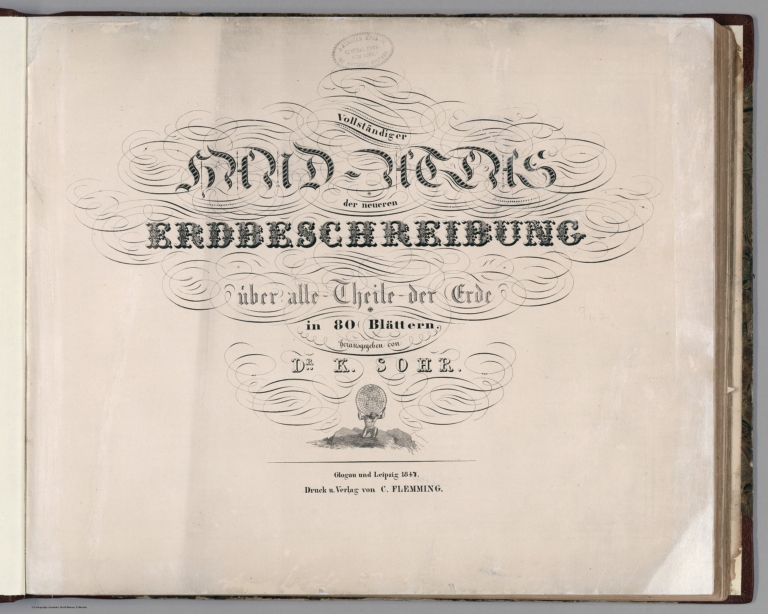 Vollständiger
HAND-ATLAS
der neueren
ERDBESCHREIBUNG
über alle-Theile-der Erde
in 80 Blättern,
herausgegeben von
DR. K. SOHR.
Glogau und Leipzig 1847.
Druck u. Verlag von C. FLEMMING.